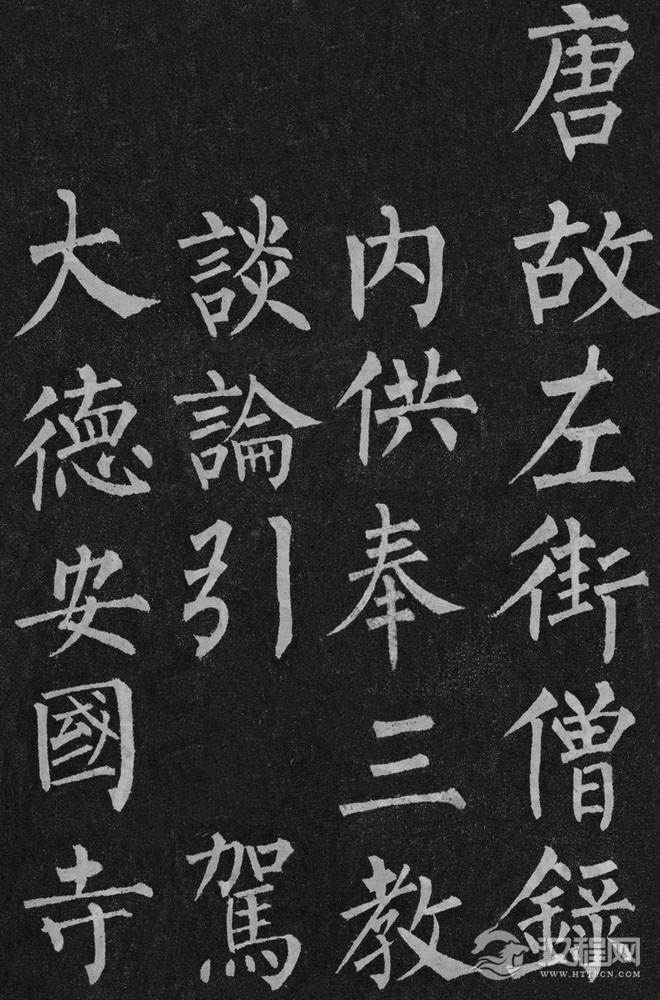 唐故左街僧錄
內供奉三教
談論引駕
大德安國寺
汉程网
WWW.HTTPCN.COM